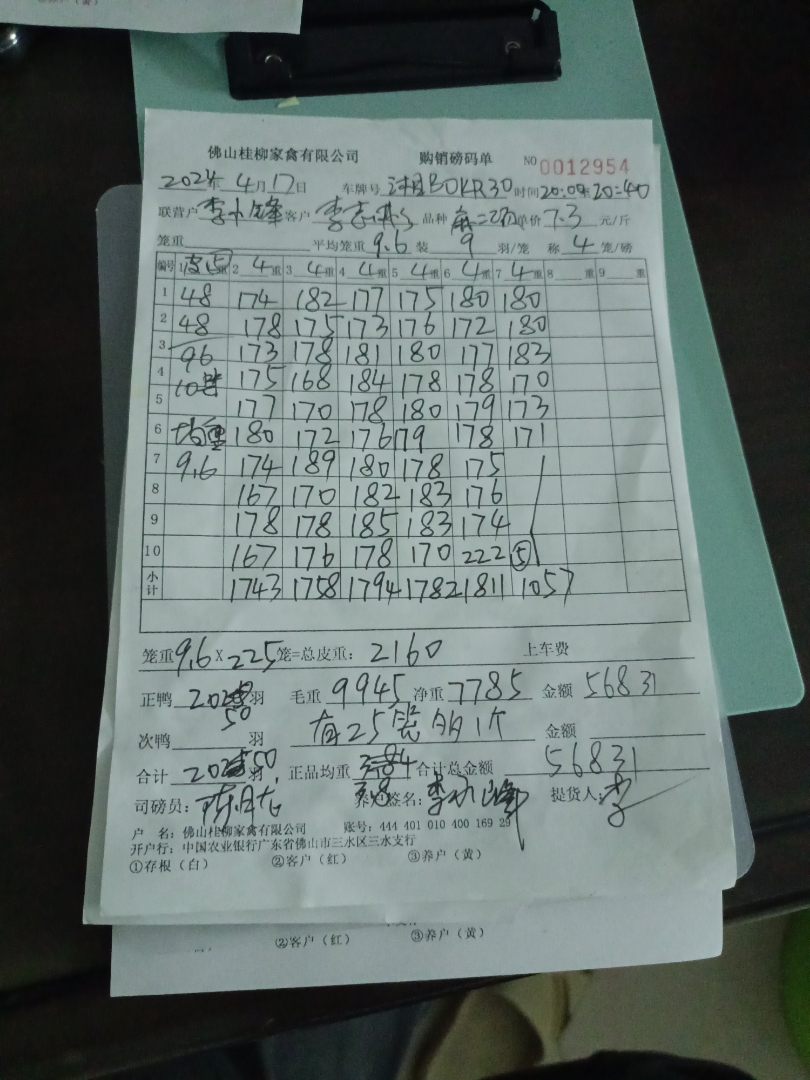 佛山桂柳家禽有限公司 购销磅码单 NO 0012954
2024年4月17日 车牌号 湘B0KR30 时间20:09至20:40
联营户 客户 品种 单价7.3元/斤
笼重 平均笼重9.6 装9羽/笼 称4笼/磅
编号 1 皮⑤重 2 4重 3 4重 4 4重 5 4重 6 4重 7 4重 8 重 9 重
1 48 174 182 177 175 180 180
2 48 178 175 173 176 172 180
3 96 173 178 181 180 177 183
4 10 175 168 184 178 178 170
5 177 170 178 180 179 173
6 均重 180 172 176 179 178 171
7 9.6 174 189 180 178 175
8 167 170 182 183 176
9 178 178 185 183 174
10 167 176 178 170 222 ⑤
小计 1743 1758 1794 1782 1811 1057
笼重9.6×225笼=总皮重:2160 上车费
正鸭 2050羽 毛重9945 净重7785 金额56831
次鸭 羽 有25 的1个 金额
合计 2050羽 正品均重 3.8 合计总金额 56831
司磅员: 养户签名: 提货人:李
户 名:佛山桂柳家禽有限公司 账号:444 401 010 400 169 29
开户行:中国农业银行广东省佛山市三水区三水支行
①存根(白) ②客户(红) ③养户(黄)
②客户(红) ③养户(黄)